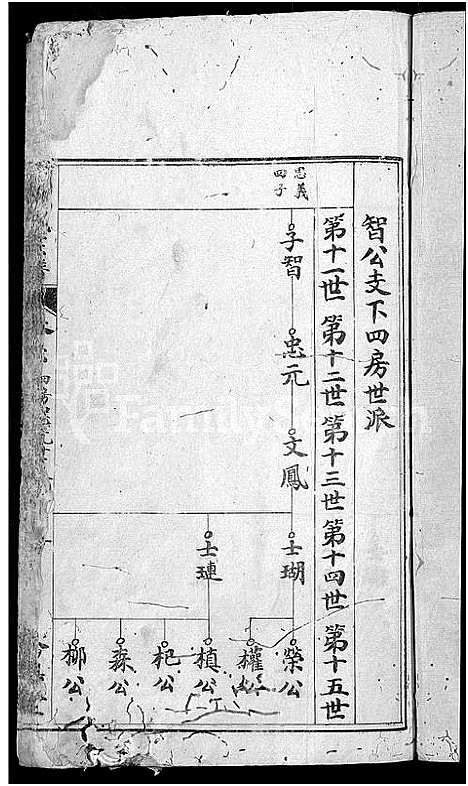 智公支下四房世派
第十一世 第十二世 第十三世 第十四世 第十五世
忠義
四子
子智
忠元
文鳳
士瑚
士璉
榮公
權公
槙公
杞公
森公
柳公